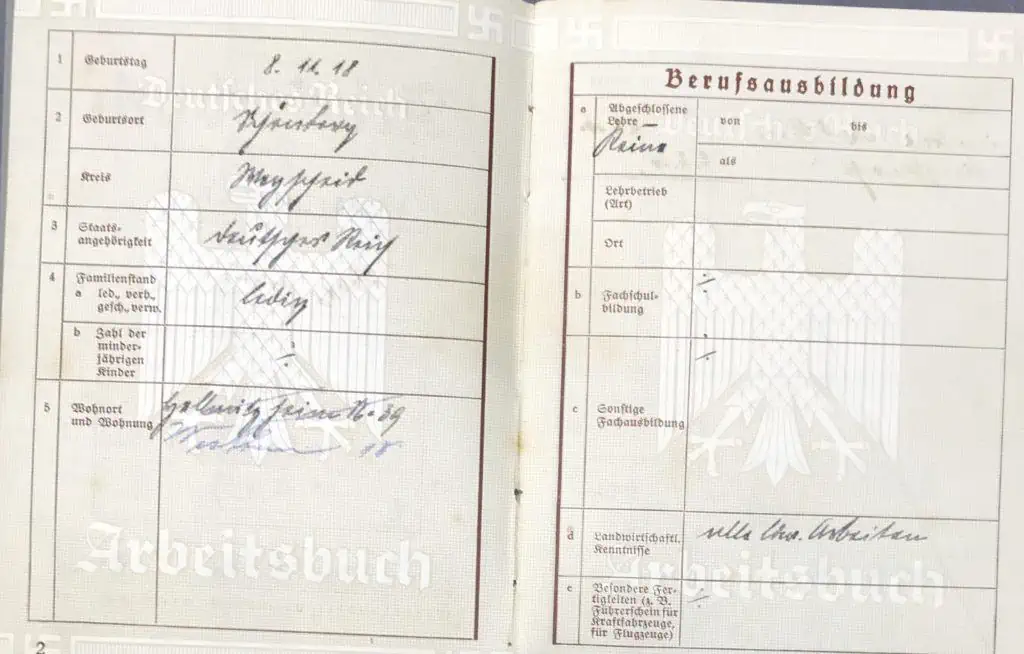 1 Geburtstag 8. 11. 18
2 Geburtsort
Kreis
3 Staats-
angehörigkeit Deutsches Reich
4 Familienstand
a led., verh.,
gesch., verw. ledig
b Zahl der
minder-
jährigen
Kinder ÷
5 Wohnort
und Wohnung
Deutsches Reich
Arbeitsbuch
2
Berufsausbildung
a Abgeschlossene
Lehre von bis
Keine
als
Lehrbetrieb
(Art)
Ort
b Fachschul-
bildung ÷
c Sonstige
Fachausbildung ÷
d Landwirtschaftl.
Kenntnisse alle ldw. Arbeiten
e Besondere Fer-
tigkeiten (z. B.
Führerschein für
Kraftfahrzeuge,
für Flugzeuge) ÷
Deutsches Reich
Arbeitsbuch